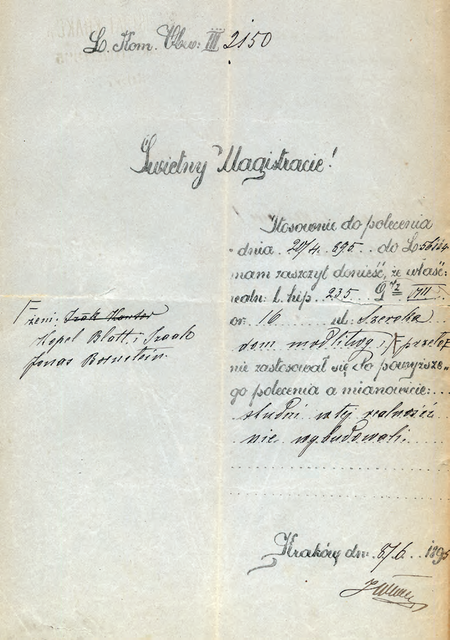 L. Kom. Obw. III. 2150
Świetny Magistracie!
Stosownie do polecenia
dnia 20/4 895 do L.
mam zaszczyt donieść, że właśc:
realn: l. hip. 235 Dz VIII
or. 16 ul. Szeroka
dom modlitwy i przeło
nie zastosował się do powyższe-
go polecenia a mianowicie:
studni w tej realności
nie wybudowali.
żeni: Izak
Kopel Blatt i Izaak
Jonas Bornstein
Kraków dn. 8/6 1895